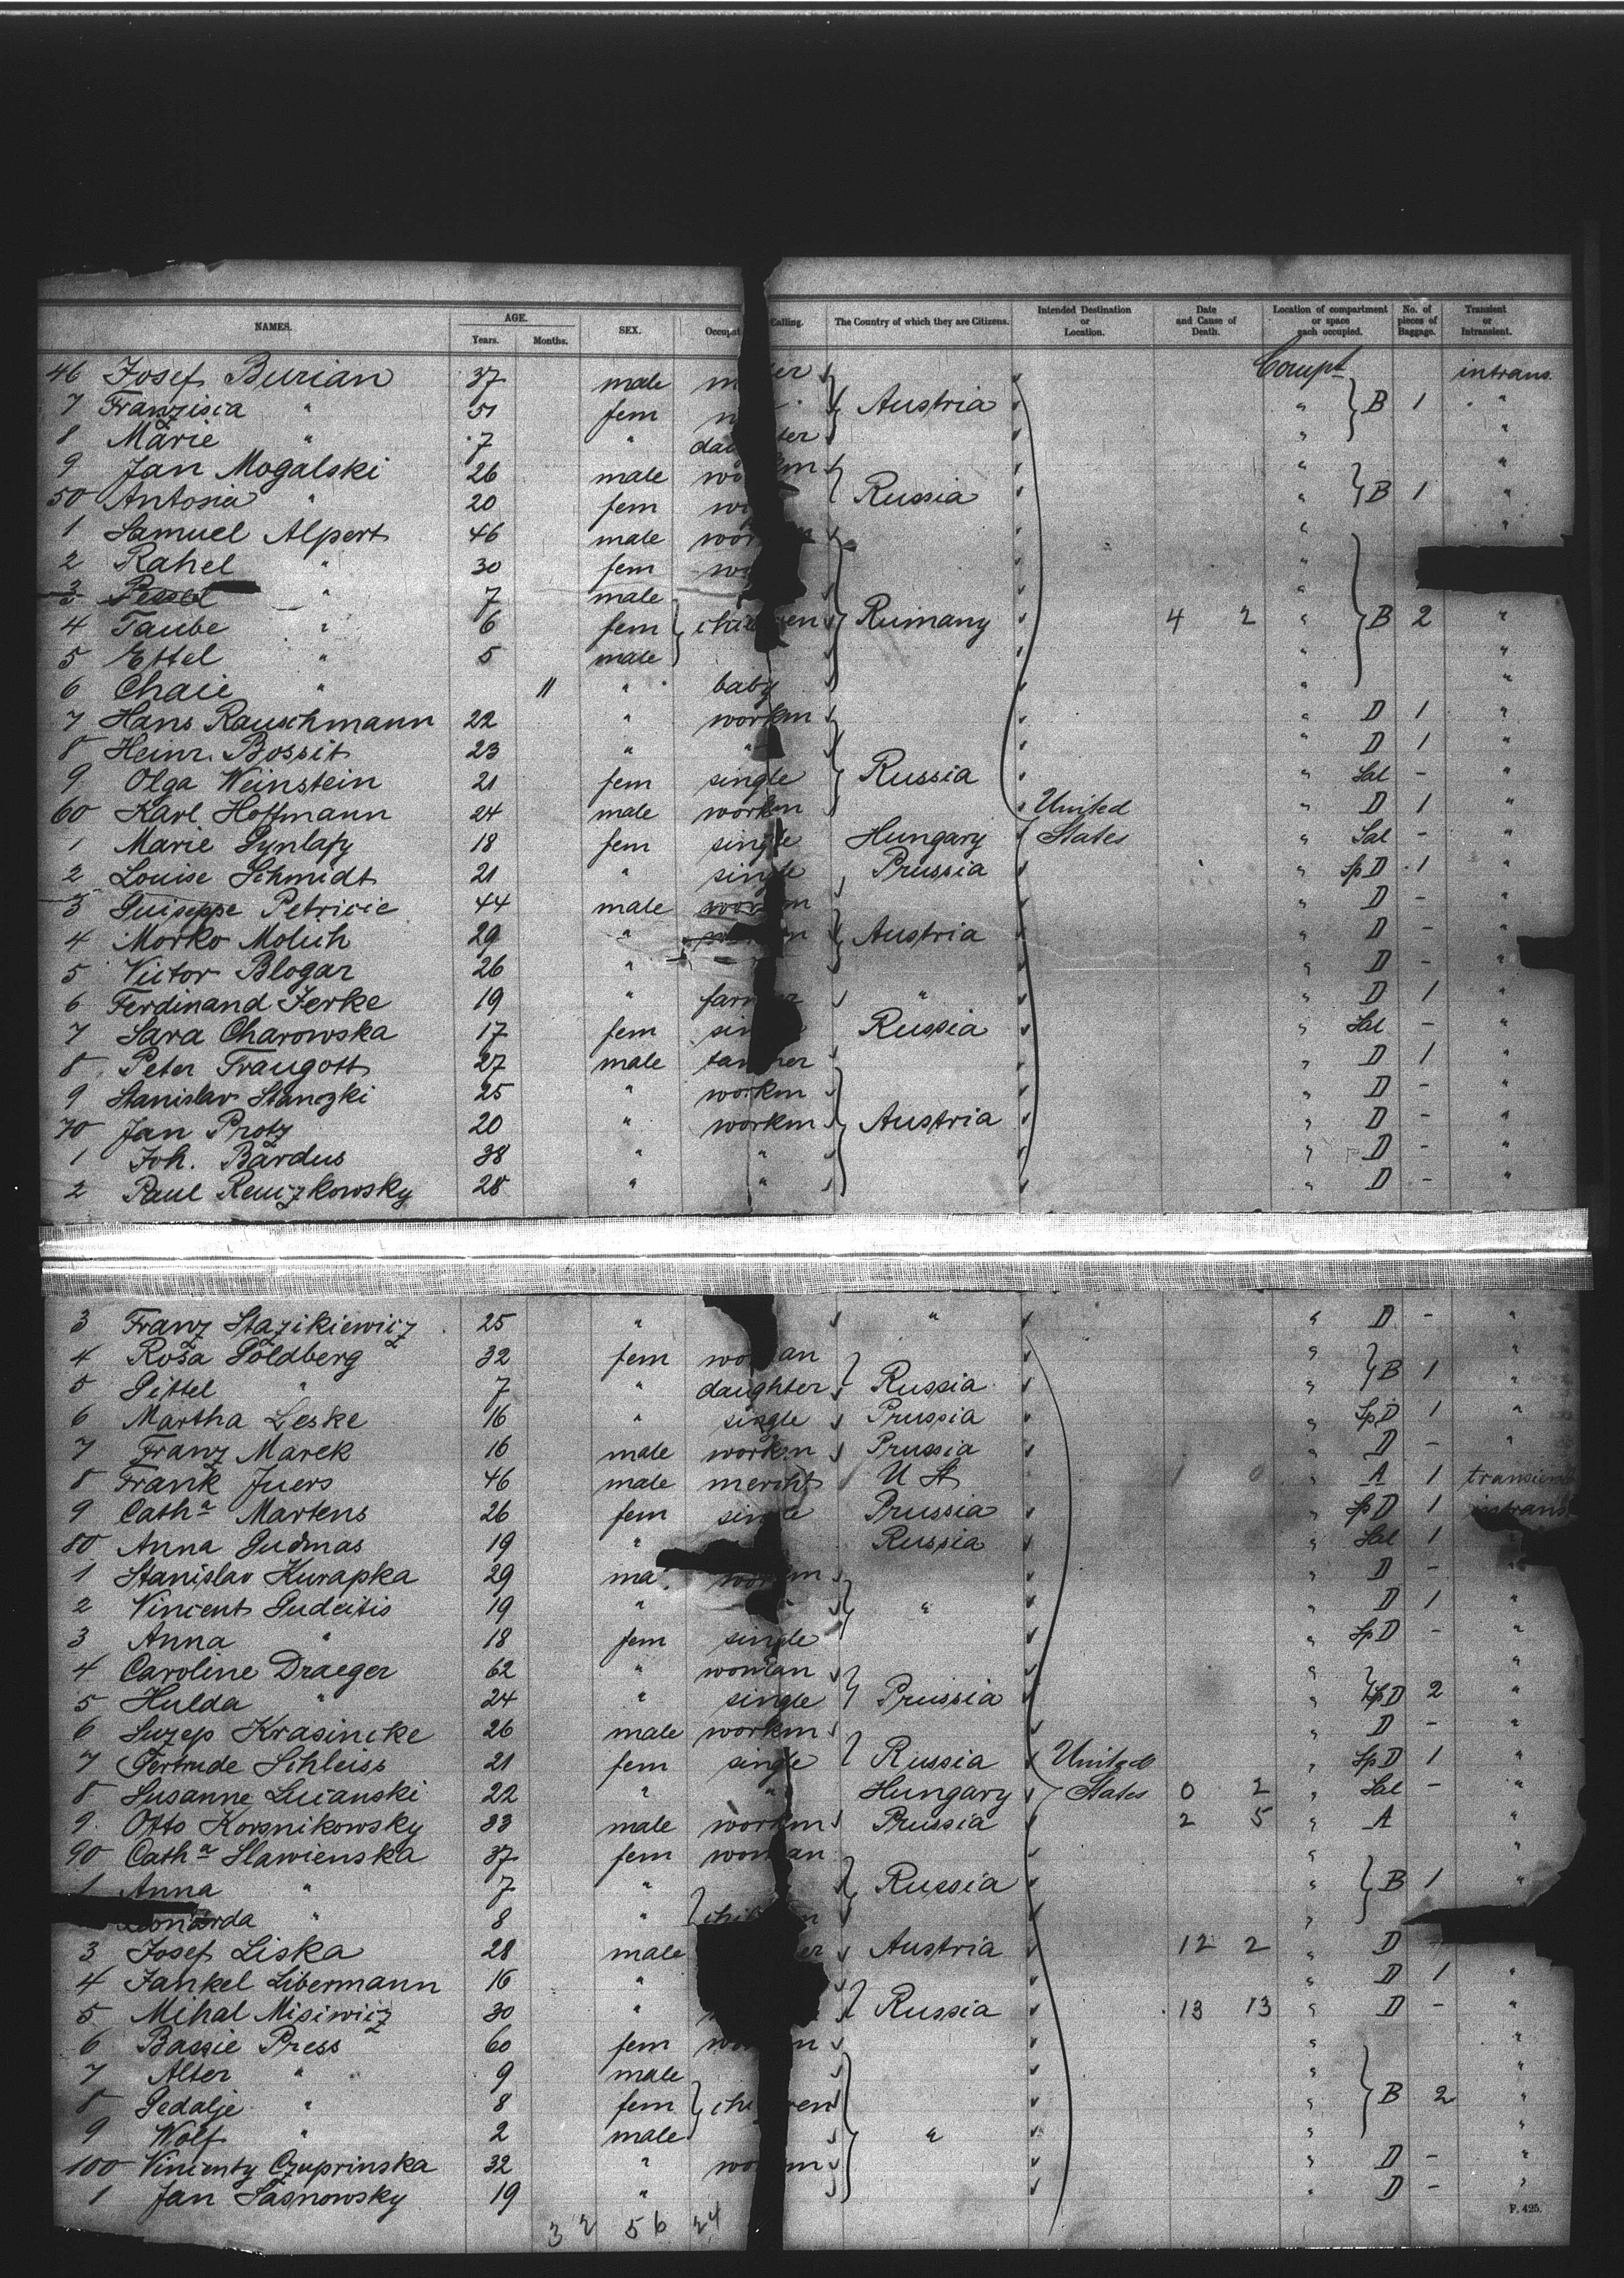 NAMES. AGE. Years. Months. SEX. Occupat Calling. The Country of which they are Citizens. Intended Destination or Location. Date and Cause of Death. Location of compartment or space each occupied. No. of pieces of Baggage. Transient or Intransient.
46 Josef Burian 37 male er Compt intrans.
7 Franzisca " 51 fem Austria " B 1 "
8 Marie " 7 " daughter " "
9 Jan Mogalski 26 male workm " "
50 Antosia " 20 fem Russia " B 1 "
1 Samuel Alpert 46 male workm " "
2 Rahel " 30 fem "
3 Pessel " 7 male "
4 Taube " 6 fem children Rumany 4 2 " B 2 "
5 Ettel " 5 male " "
6 Chaie " 11 " baby " "
7 Hans Rauschmann 22 " workm " D 1 "
8 Heinr. Bossit 23 " " " D 1 "
9 Olga Weinstein 21 fem single Russia " Sal - "
60 Karl Hoffmann 24 male workm United " D 1 "
1 Marie 18 fem single Hungary States " Sal - "
2 Louise Schmidt 21 " single Prussia " Sp D 1 "
3 Guiseppe Petricic 44 male workm " D - "
4 Morko Moluh 29 " Austria " D - "
5 Victor Blogar 26 " " D -
6 Ferdinand Jerke 19 " farmer " " D 1 "
7 Sara Charowska 17 fem Russia " Sal - "
8 Peter Traugott 27 male tanner " D 1 "
9 Stanislav Stanzki 25 " workm " D - "
70 Jan Protz 20 " workm Austria " D - "
1 Joh. Bardus 38 " " " D - "
2 Paul Renczkowsky 28 " " " D - "
3 Franz Stazikiewicz 25 " " " D - "
4 Rosa Goldberg 32 fem woman " "
5 Gittel " 7 " daughter Russia " B 1 "
6 Martha Leske 16 " single Prussia " Sp D 1 "
7 Franz Marek 16 male workm Prussia " D - "
8 Frank Juers 46 male mercht U St 1 0 " A 1 transient
9 Catha Martens 26 fem single Prussia " Sp D 1 intrans.
80 Anna Gudmas 19 " Russia " Sal 1
1 Stanislav Kurapka 29 ma workm " D - "
2 Vincent Gudcitis 19 " " " D 1 "
3 Anna " 18 fem single " Sp D - "
4 Caroline Draeger 62 " woman " "
5 Hulda " 24 " single Prussia " Sp D 2 "
6 Suzep Krasincke 26 male workm " D - "
7 Gertrude Schleiss 21 fem single Russia United " Sp D 1 "
8 Susanne Lucanski 22 " " Hungary States 0 2 " Sal - "
9 Otto Korsnikowsky 33 male workm Prussia 2 5 " A "
90 Catha Slawienska 37 fem woman " "
1 Anna " 7 " Russia " B 1 "
Leonarda " 8 " children "
3 Josef Liska 28 male er Austria 12 2 " D
4 Jankel Libermann 16 " " D 1 "
5 Mihal Misiwicz 30 " Russia 13 13 " D - "
6 Bassie Press 60 fem woman " "
7 Alter " 9 male " "
8 Gedalje " 8 fem children " B 2 "
9 Wolf " 2 male " " "
100 Vincenty Czuprinska 32 " workm " D - "
1 Jan Sasnowsky 19 " " D - "
32 56 24
F. 425.